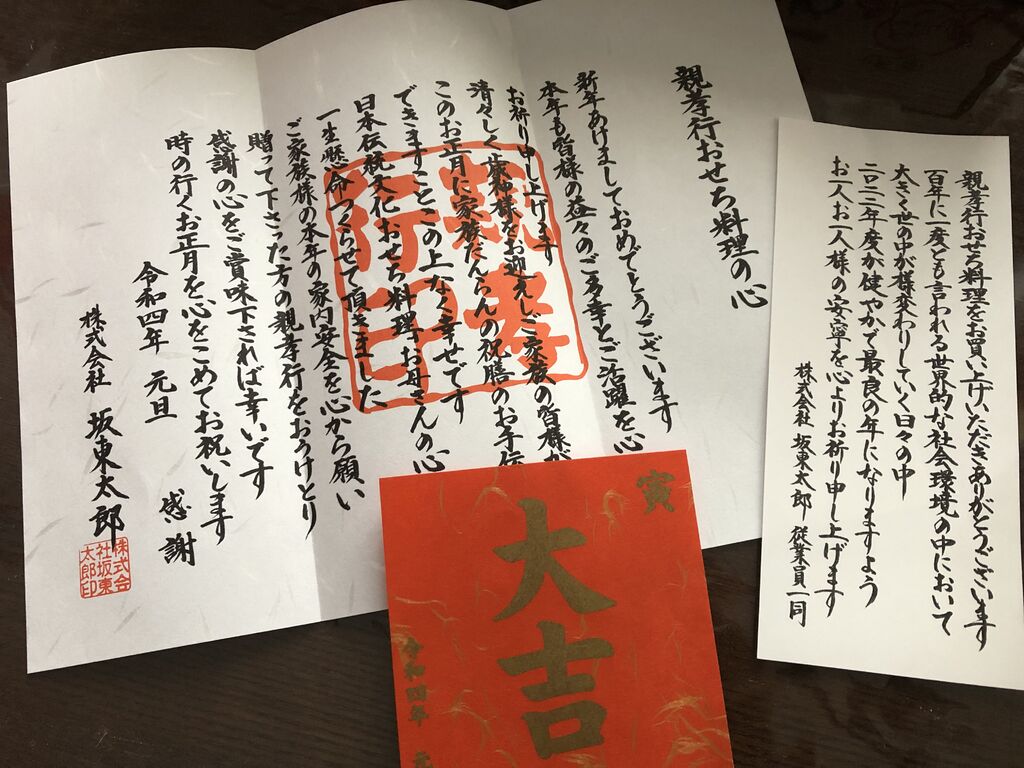 親孝行おせち料理をお買い上げいただきありがとうございます
百年に一度とも言われる世界的な社会環境の中において
大きく世の中が様変わりしていく日々の中
二〇二二年度が健やかで最良の年になりますよう
お一人お一人様の安寧を心よりお祈り申し上げます
株式会社 坂東太郎 従業員一同
親孝行おせち料理の心
新年あけましておめでとうございます
本年も皆様の益々のご多幸とご活躍を心
お祈り申し上げます
清々しく歳神様をお迎えしご家族の皆様が
このお正月に家族だんらんの祝膳のお手伝
できますことこの上なく幸せです
日本伝統文化おせち料理お母さんの心
一生懸命つくらせて頂きました
ご家族様の本年の家内安全を心から願い
贈って下さった方の親孝行をおうけとり
感謝の心をご賞味下されば幸いです
時の行くお正月を心をこめてお祝いします
感謝
令和四年 元旦
株式会社 坂東太郎
株式会
社坂東
太郎印
親孝
行中
寅
大吉
令和四年 元